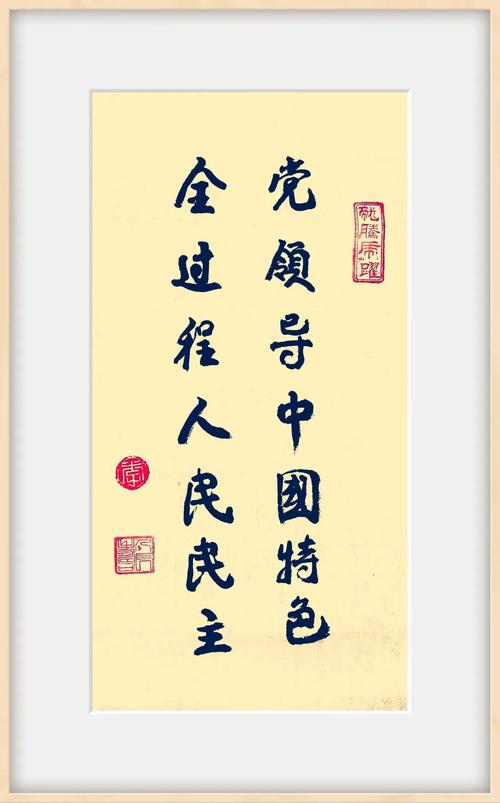 党领导中國特色
全过程人民民主
龍騰虎躍
李